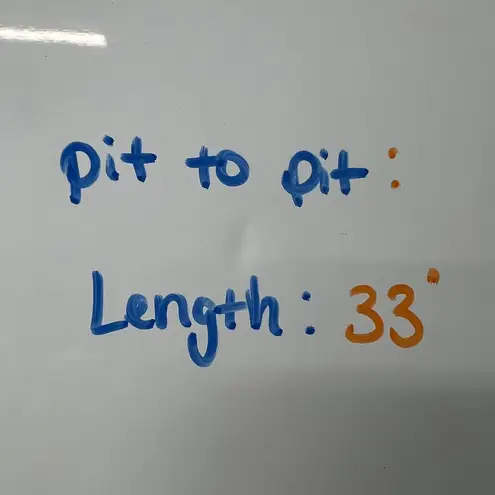 pit to pit:
Length: 33"